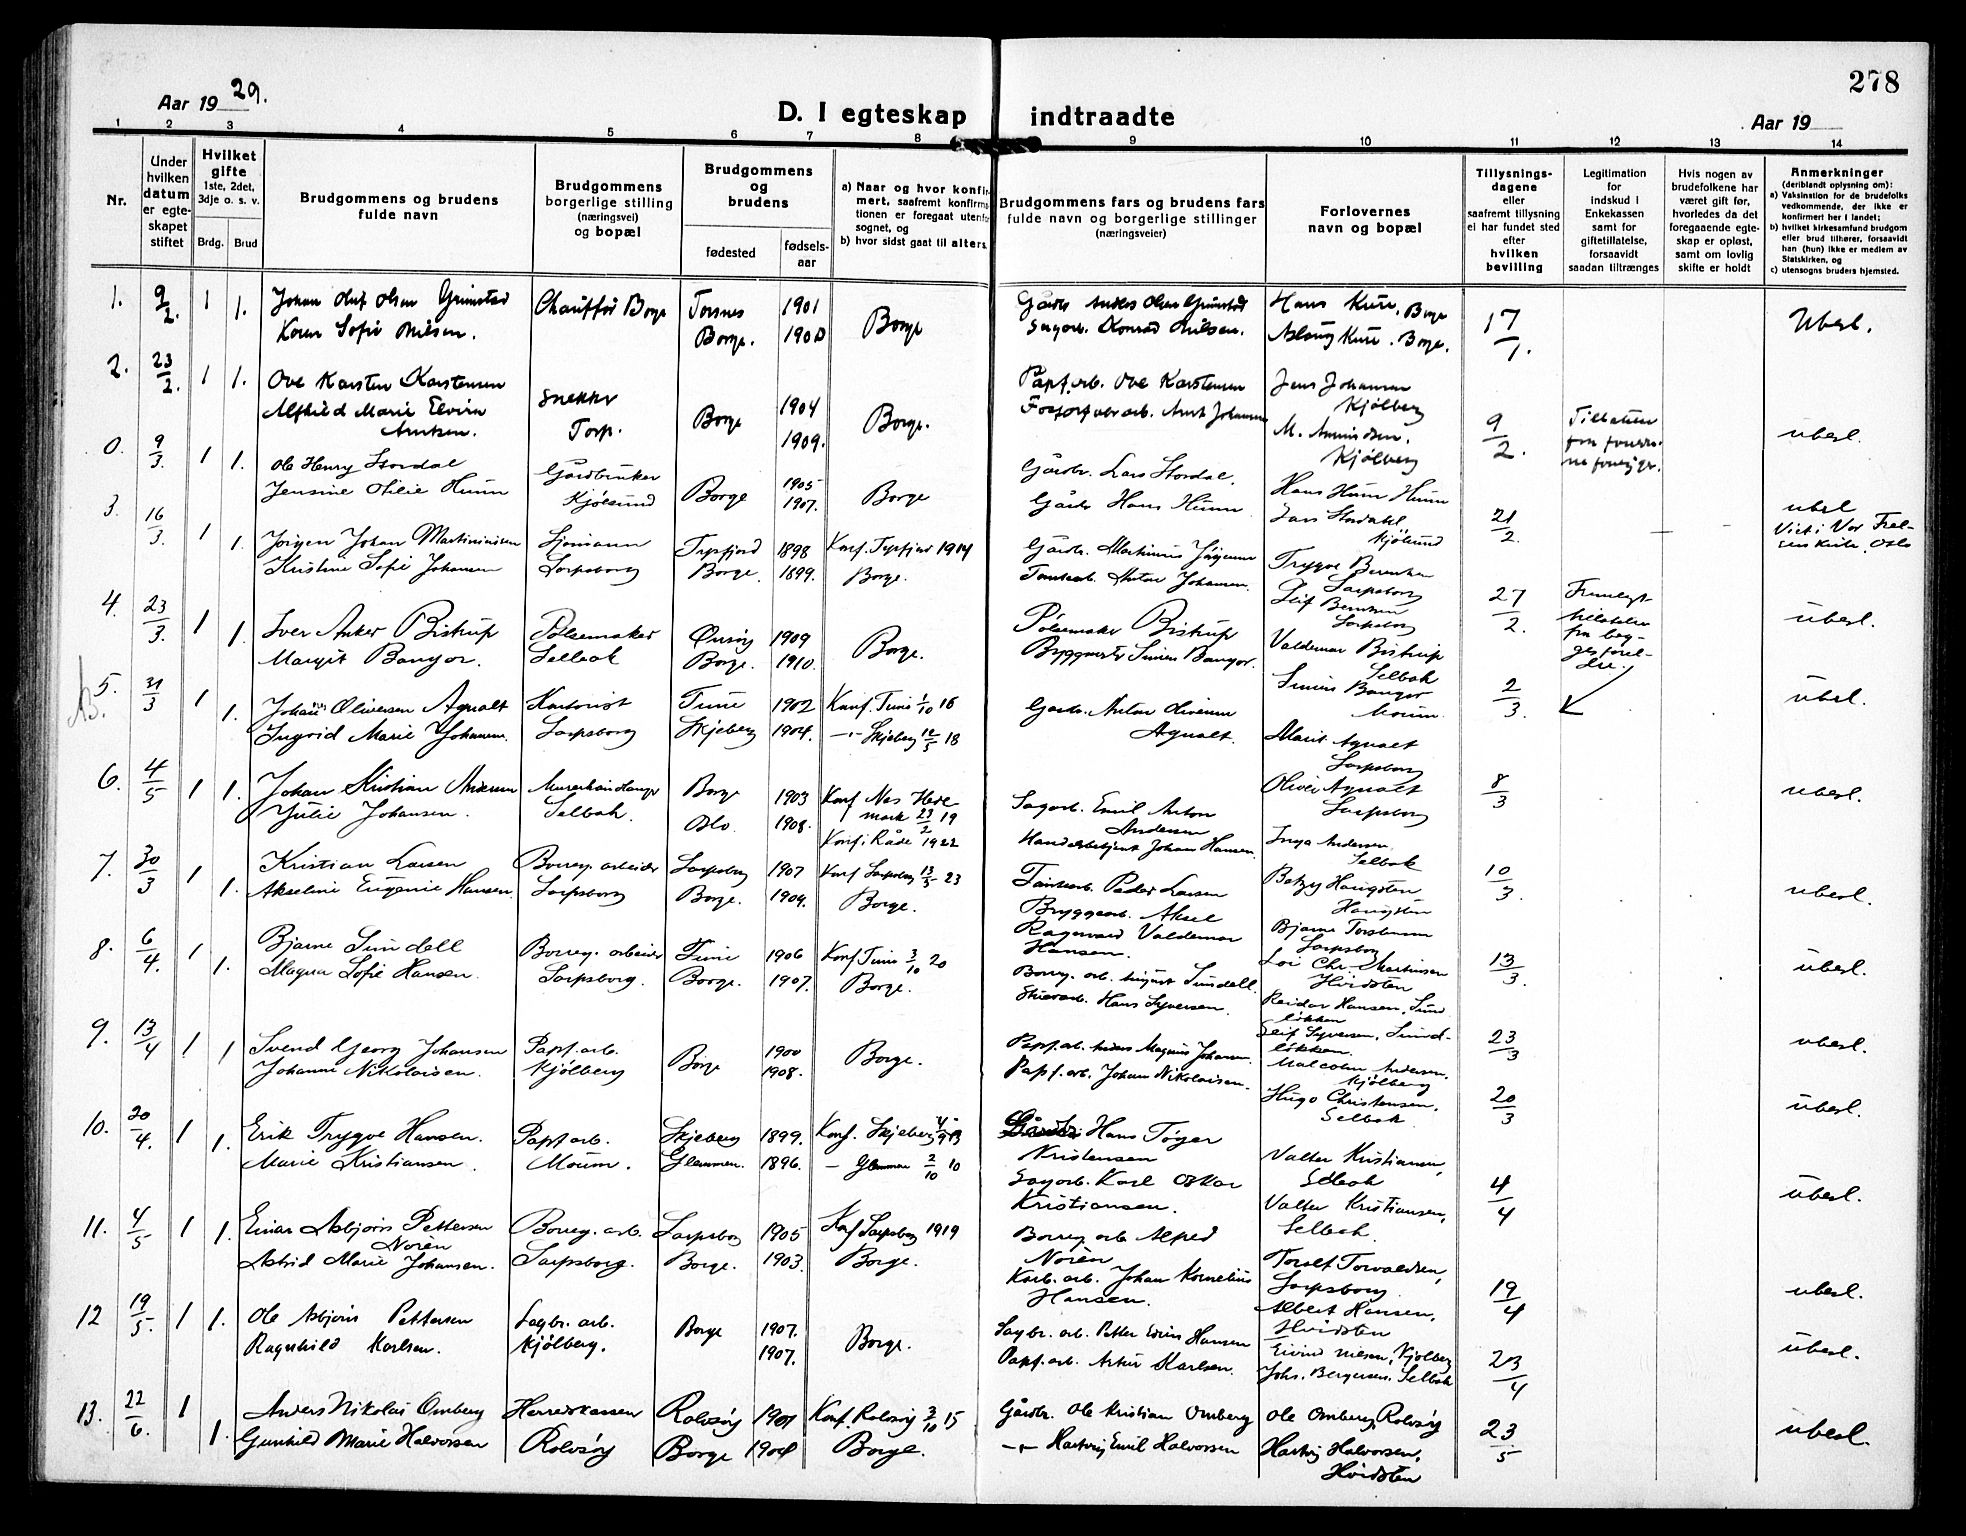 278
Aar 1929.
D. I egteskap indtraadte
Aar 19
1 2 3 4 5 6 7 8 9 10 11 12 13 14
Nr.
Under hvilken datum er egteskapet stiftet
Hvilket gifte 1ste, 2det, 3dje o. s. v.
Brdg. Brud
Brudgommens og brudens fulde navn
Brudgommens borgerlige stilling (næringsvei) og bopæl
Brudgommens og brudens
fødested fødsels-aar
a) Naar og hvor konfirmert, saafremt konfirmationen er foregaat utenfor sognet, og
b) hvor sidst gaat til alters.
Brudgommens fars og brudens fars fulde navn og borgerlige stillinger (næringsveier)
Forlovernes navn og bopæl
Tillysningsdagene eller saafremt tillysning ei har fundet sted efter hvilken bevilling
Legitimation for indskud i Enkekassen samt for giftetillatelse, forsaavidt saadan tiltrænges
Hvis nogen av brudefolkene har været gift før, hvorledes da det foregaaende egteskap er opløst, samt om lovlig skifte er holdt
Anmerkninger (deriblandt oplysning om):
a) Vaksination for de brudefolks vedkommende, der ikke er konfirmert her i landet;
b) hvilket kirkesamfund brudgom eller brud tilhører, forsaavidt han (hun) ikke er medlem av Statskirken, og
c) utensogns bruders hjemsted.
1. 9/2. 1 1. Johan Oluf Olsen Grimstad Chauffør Borge Torsnes 1901 Borge Gårdbr. Anders Olsen Grimstad Hans Kure, Borge 17/1. Ubesl.
Karen Sofie Nilsen. Borge. 1900 Sagarb. Konrad Nilsen. Aslaug Kure. Borge.
2. 23/2. 1 1. Ove Karsten Karstensen Snekker Borge 1904 Borge. Papf.arb. Ove Karstensen Jens Johansen Kjølberg 9/2. Tillatelse fra ubesl.
Alfhild Marie Elvira Torp. 1909. arb. Arnt Johansen M. Amundsen. Kjølberg
0. 9/3. 1 1. Ole Henry Stordal Gårdbruker Borge 1905 Borge Gårdbr. Lars Stordal. Hans Huun Huun 21/2. ubesl
Jensine Otilie Huun Kjølsund 1907. Gårdbr Hans Huun Lars Stordahl. Kjølsund
3. 16/3. 1 1. Jörgen Johan Martiniusen Sjömann Tysfjord 1898 Konf. Tysfjord 1914 Gårdbr. Martinius Jörgensen Trygve Berntsen Sarpsborg 27/2. Viet i Vor Frelsers kirke, Oslo
Kristine Sofie Johansen Sarpsborg Borge. 1899. Borge. Tomtearb. Anton Johansen. Leif Berntsen Sarpsborg ubesl.
4. 23/3. 1 1. Iver Anker Bistrup Pølsemaker Onsöy 1909 Borge. Pølsemaker Bistrup Valdemar Bistrup Selbak 2/3. Fremlagt tillatelse fra begges foreldre. ubesl.
Margit Bangor. Selbak Borge. 1910. Simen Bangor. Simen Bangor Moum.
5. 31/3 1 1. Johan Oliversen Agnalt Kontorist Tune 1902 Konf. Tune 1/10 16 Gårdbr. Anton Oliversen Agnalt. Marit Agnalt Sarpsborg 8/3 ubesl.
Ingrid Marie Johansen. Sarpsborg Skjeberg 1904. Skjeberg 12/5 18 Oliver Agnalt Sarpsborg
6. 4/5 1 1. Johan Kristian Andersen Murerhåndlanger Borge 1903 Konf. Nes Hedemark 23/2 19 Sagarb. Emil Anton Andersen Inga Andersen Selbak 10/3.
Julie Johansen. Selbak. 1908. Konf. i Råde 1922 Handelsbetjent Johan Hansen. Betzy Haugsten Haugsten
7. 30/3 1 1. Kristian Larsen Borreg. arbeider Sarpsborg 1907 Konf Sarpsborg 13/5 23 Tomtearb. Peder Larsen Bjarne Torstensen Sarpsborg 13/3. ubesl.
Akseline Eugenie Hansen. Sarpsborg Borge. 1909. Borge. Bryggearb. Aksel Ragnvald Valdemar Hansen. Martinsen Hvidsten
8. 6/4. 1 1. Bjarne Sundell Borreg. arbeider Tune 1906 Konf Tune 3/10 20 Borreg. arb. August Sundell. Reidar Hansen, Sundløkken 23/3 ubesl.
Magna Sofie Hansen. Sarpsborg. Borge. 1907. Borge. Hans Syversen. Leif Syversen, Sundløkken.
9. 13/4 1 1 Svend Georg Johansen Papf. arb. Borge 1900 Borge. Papf. arb. Anders Magnus Johansen. Malcolm Andersen. Kjølberg 20/3 ubesl.
Johanne Nikolaisen. Kjölberg 1908. Papf. arb. Johan Nikolaisen. Hugo Christensen, Selbak.
10. 20/4. 1 1. Erik Trygve Hansen. Papf arb. Skjeberg 1899. Konf. Skjeberg Hans Töger Kristensen Valter Kristiansen, Selbak 4/4 ubesl.
Marie Kristiansen. Moum. Glemmen. 1896. – Glemmen 2/10 10 Sagarb. Karl Oskar Kristiansen. Valter Kristiansen, Selbak.
11. 4/5 1 1. Einar Asbjørn Pettersen Norén Borreg. arb. Sarpsborg 1905 Konf Sarpsborg 1919 Borreg arb Alfred Norén Torolf Torvaldsen, Sarpsborg 19/4 ubesl.
Astrid Marie Johansen. Sarpsborg. Borge. 1903. Borge. Karb. arb. Johan Kornelius Hansen. Albert Hansen, Hvidsten
12 19/5. 1 1. Ole Asbjörn Pettersen Sagbr. arb. Borge 1907. Borge. Sagbr. arb. Petter Edvin Hansen Eivind Nilsen, Kjølberg 23/4 ubesl.
Ragnhild Karlsen. Kjölberg. 1907. Papf. arb. Artur Karlsen. Johs. Bergersen. Selbak
13. 22/6. 1 1. Anders Nikolai Omberg Herredskasserer Rolvsöy 1901 Konf. Rolvsöy 3/10 15 Gårdbr. Ole Kristian Omberg Ole Omberg, Rolvsöy 23/5 ubesl.
Gunhild Marie Halvorsen Rolvsöy Borge 1904 Borge. Hartvig Emil Halvorsen Hartvig Halvorsen, Hvidsten